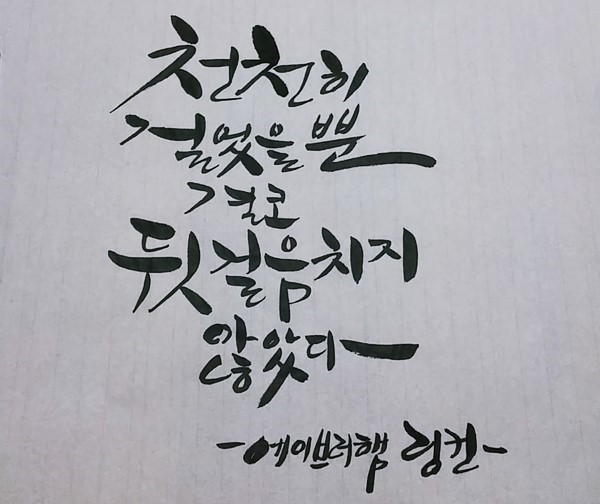 천천히
걸었을 뿐
결코
뒷걸음치지
않았다
-에이브러햄 링컨-